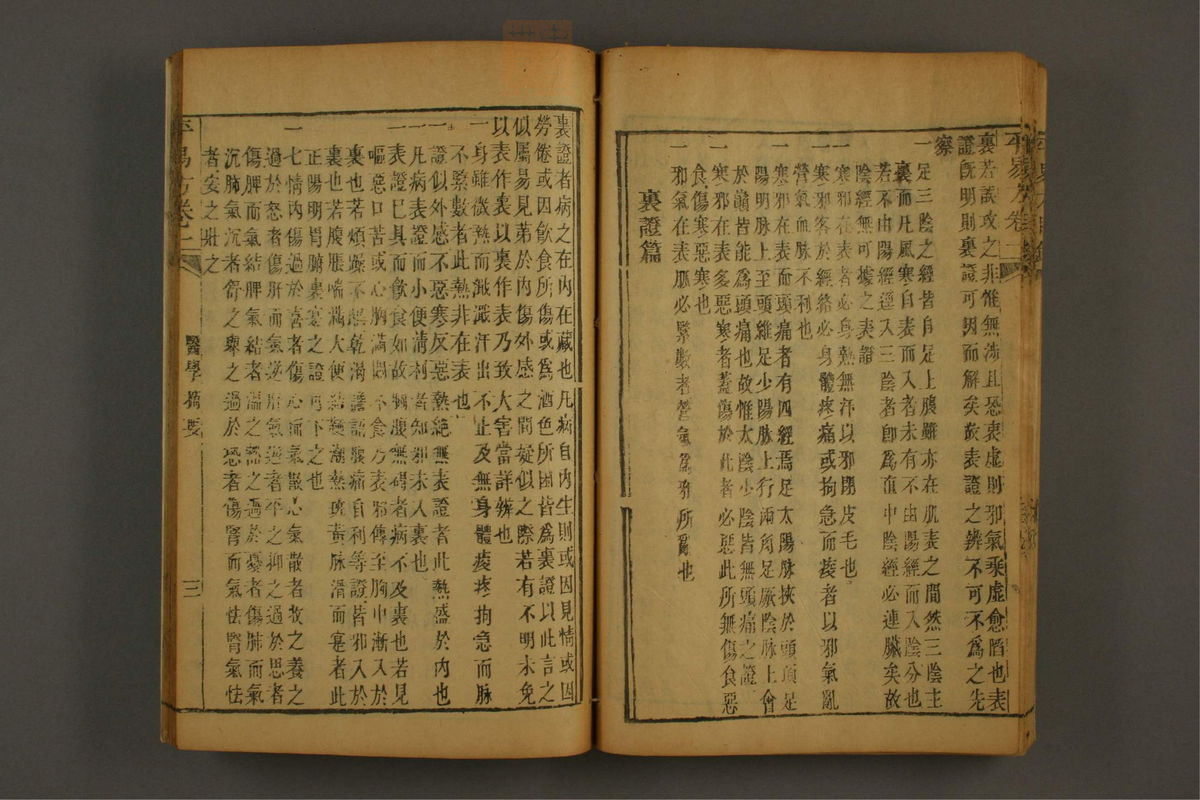 裏若誤攻之非惟無涉且恐表虛則邪氣乘虛愈陷也表
證既明則裏證可因而解矣故表證之辨不可不爲之先
察
一足三陰之經皆自足上腹雖亦在肌表之間然三陰主
裏而凡風寒自表而入者未有不由陽經而入陰分也
若不由陽經逕入三陰者卽爲直中陰經必連臟矣故
陰經無可據之表證
一寒邪在表者必身熱無汗以邪閉皮毛也
一寒邪客於經絡必身體疼痛或拘急而痠者以邪氣亂
營氣血脉不利也
一寒邪在表而頭痛者有四經焉足太陽脉挾於頭頂足
陽明脉上至頭維足少陽脉上行兩角足厥陰脉上會
於巔皆能爲頭痛也故惟太陰少陰皆無頭痛之證
一寒邪在表多惡寒者蓋傷於此者必惡此所無傷食惡
食傷寒惡寒也
一邪氣在表脈必緊數者營氣爲邪所爲也
裏證篇
裏證者病之在內在藏也凡病自內生則或因見情或因
勞倦或因飲食所傷或爲酒色所困皆爲裏證以此言之
似屬易見第於內傷外感之間疑似之際若有不明未免
以表作裏以裏作表乃致大害當詳辨也
一身雖微熱而濈濈汗出不止及無身體痠疼拘急而脉
不緊數者此熱非在表也
一證似外感不惡寒反惡熱絶無表證者此熱盛於內也
一凡病表證而小便清利者知邪未入裏也
一表證巳具而飲食如故胸腹無碍者病不及裏也若見
嘔惡口苦或心胸滿悶不食乃表邪傳至胸中漸入於
裏也若煩躁不眠乾渴譫語腹痛自利等證皆邪入於
裏也若腹脹喘滿大便結硬潮熱斑黃脉滑而寔者此
正陽明胃腑裏寔之證可下之也
一七情內傷過於喜者傷心而氣散心氣散者收之養之
過於怒者傷肝而氣逆肝氣逆者平之抑之過於思者
傷脾而氣結脾氣結者溫之豁之過於憂者傷肺而氣
沉肺氣沉者舒之舉之過於恐者傷腎而氣怯腎氣怯
者安之壯之
平易方卷二
醫學摘要
三